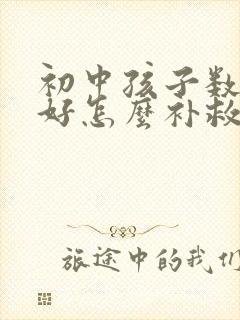 初中孩子数
好怎麽补救
旅途中的我们